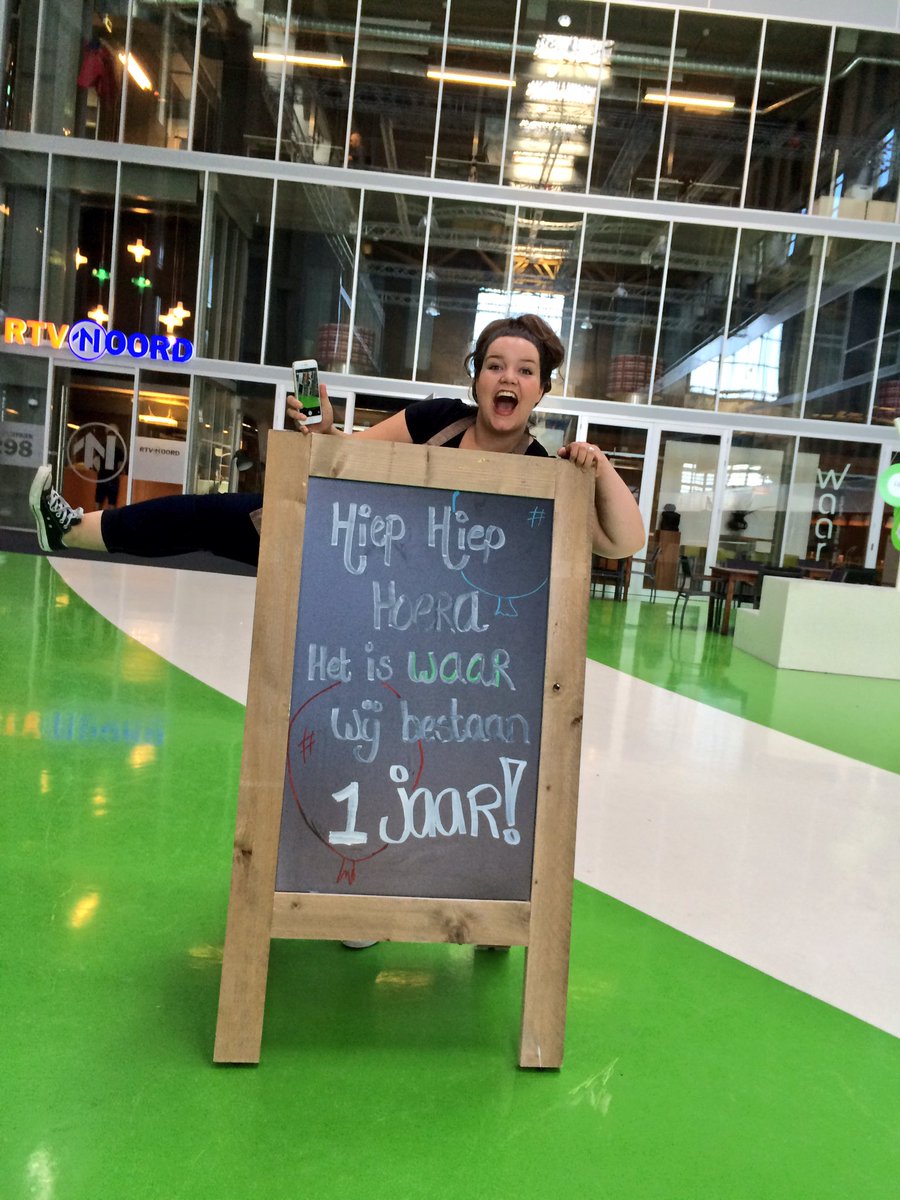 RTV NOORD
298
RTV NOORD
waar
Hiep Hiep #
Hoera
Het is waar
# wij bestaan
1 jaar!